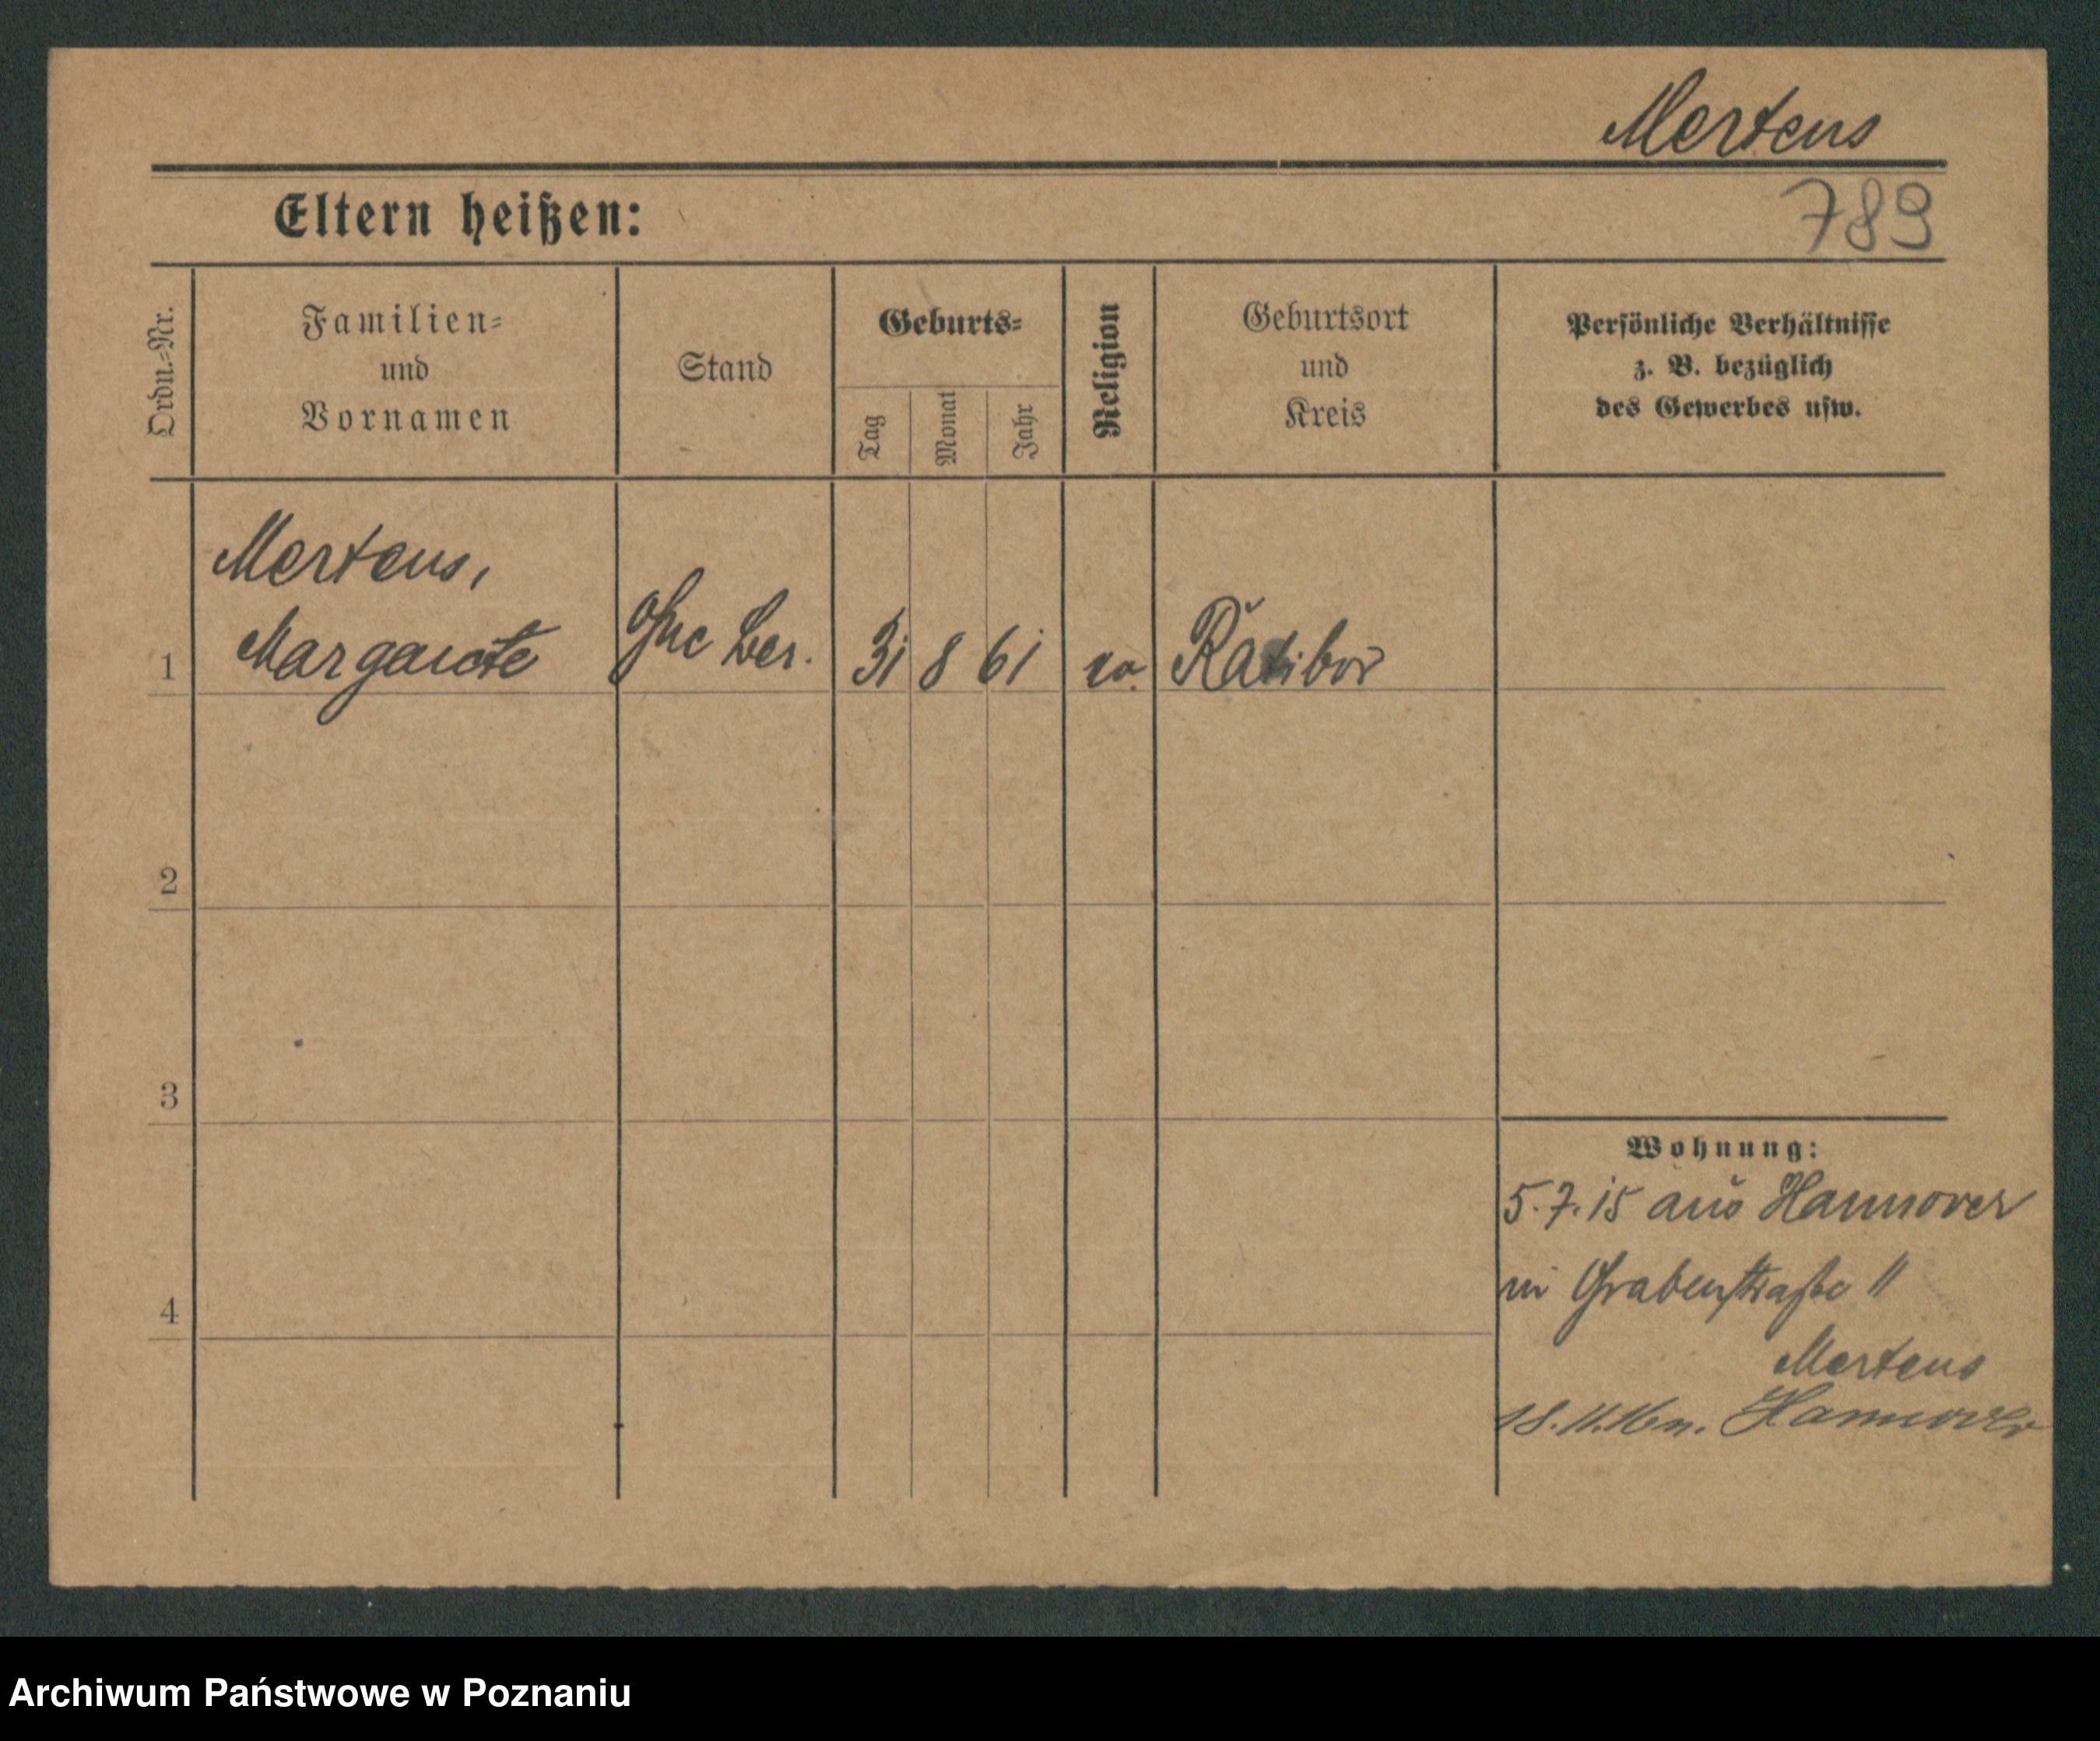 Mertens
Eltern heißen:
789
Ordn.-Nr.
Familien-
und
Vornamen
Stand
Geburts-
Tag
Monat
Jahr
Religion
Geburtsort
und
Kreis
Persönliche Verhältnisse
z. B. bezüglich
des Gewerbes usw.
Mertens,
1 Margarete Ohne Ber. 31 8 61 Ratibor
2
3
Wohnung:
5.7.15 aus Hannover
in Grabenstraße 11
4
Mertens
18.11.16 n. Hannover
Archiwum Państwowe w Poznaniu